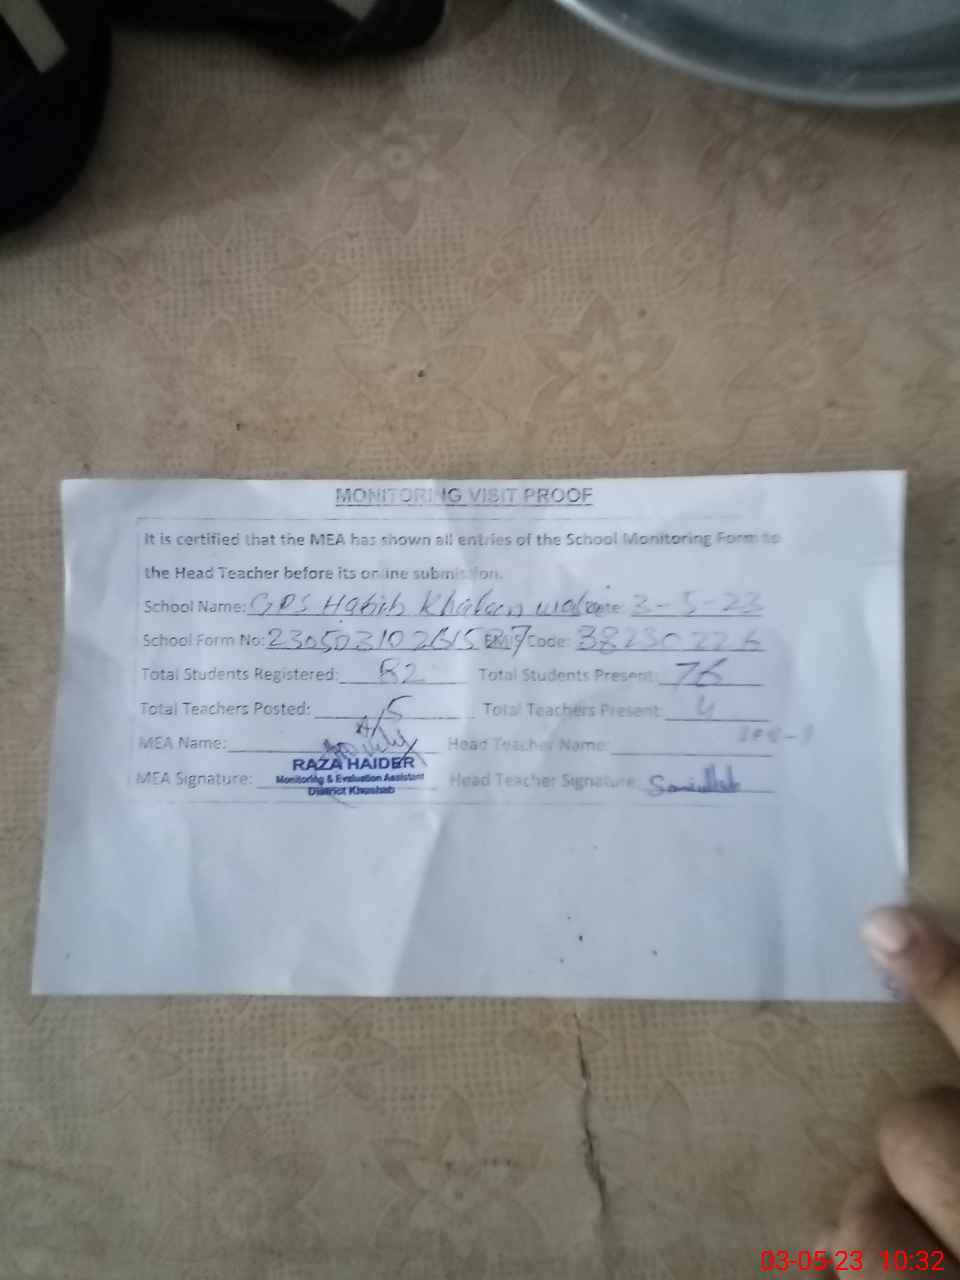 MONITORING VISIT PROOF
It is certified that the MEA has shown all entries of the School Monitoring Form to
the Head Teacher before its online submission.
School Name: GPS Habib Date: 3-5-23
School Form No: EMIS Code: 38230226
Total Students Registered: 82 Total Students Present: 76
Total Teachers Posted: 5 Total Teachers Present: 4
MEA Name: Head Teacher Name:
RAZA HAIDER
MEA Signature: Monitoring & Evaluation Assistant Head Teacher Signature: Samiullah
District Khushab
03-05-23 10:32